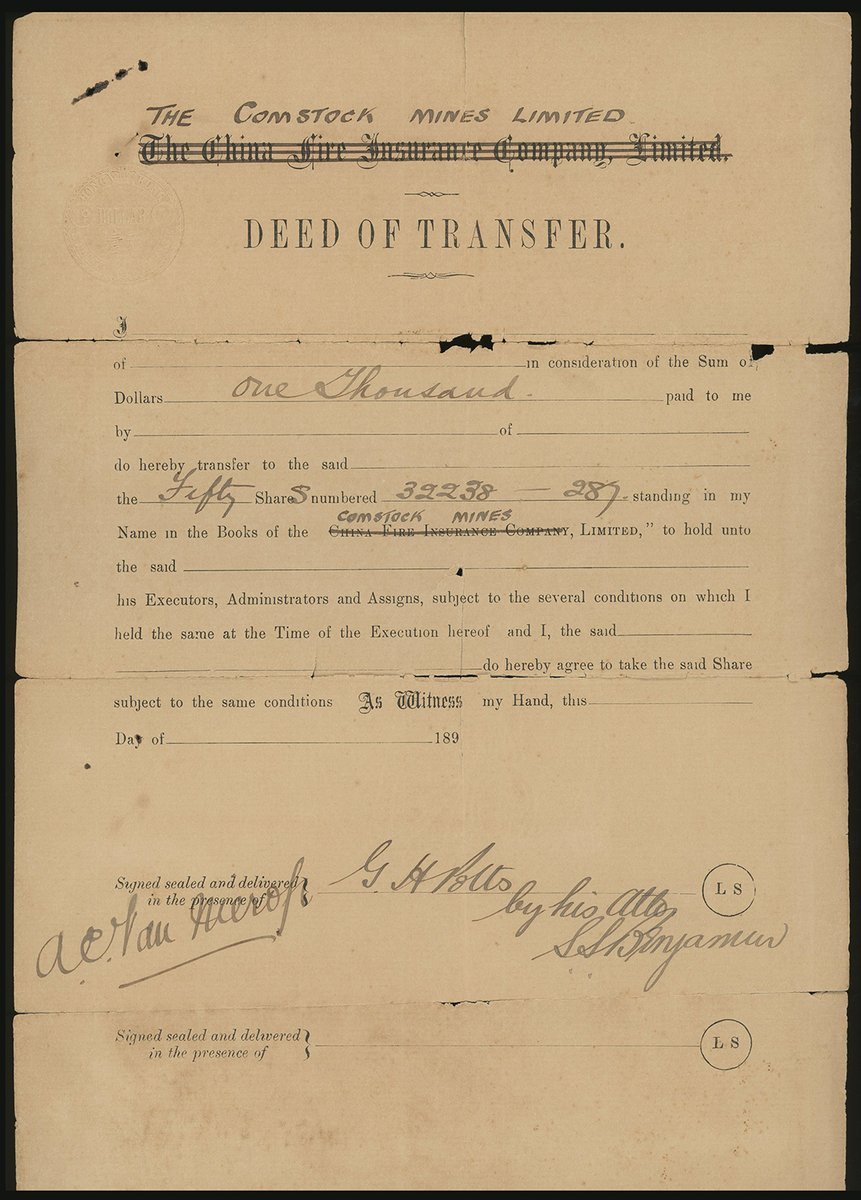 THE COMSTOCK MINES LIMITED.
The China Fire Insurance Company, Limited.
DEED OF TRANSFER.
I
of in consideration of the Sum of
Dollars One Thousand. paid to me
by of
do hereby transfer to the said
the Fifty Shares numbered 32238 — 287. standing in my
COMSTOCK MINES
Name in the Books of the CHINA FIRE INSURANCE COMPANY, LIMITED," to hold unto
the said
his Executors, Administrators and Assigns, subject to the several conditions on which I
held the same at the Time of the Execution hereof and I, the said
do hereby agree to take the said Share
subject to the same conditions As Witness my Hand, this
Day of 189
Signed sealed and delivered
in the presence of
G. H Potts
L S
by his Atty
S S Benjamin
A. C. Van
Signed sealed and delivered
in the presence of
L S